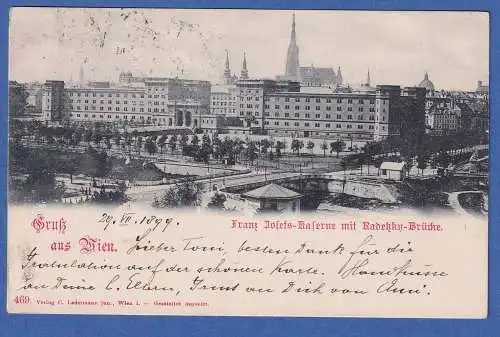 Franz Josefs-Kaserne mit Radetzky-Brücke.
Gruß
aus Wien.
29. VII. 1899.
Lieber Toni, besten Dank für die
Gratulation auf der schönen Karte. Handküsse
an Deine l. Eltern, Gruss an Dich von Ami.
469 Verlag C. Ledermann jun., Wien I. — Gesetzlich deponirt.